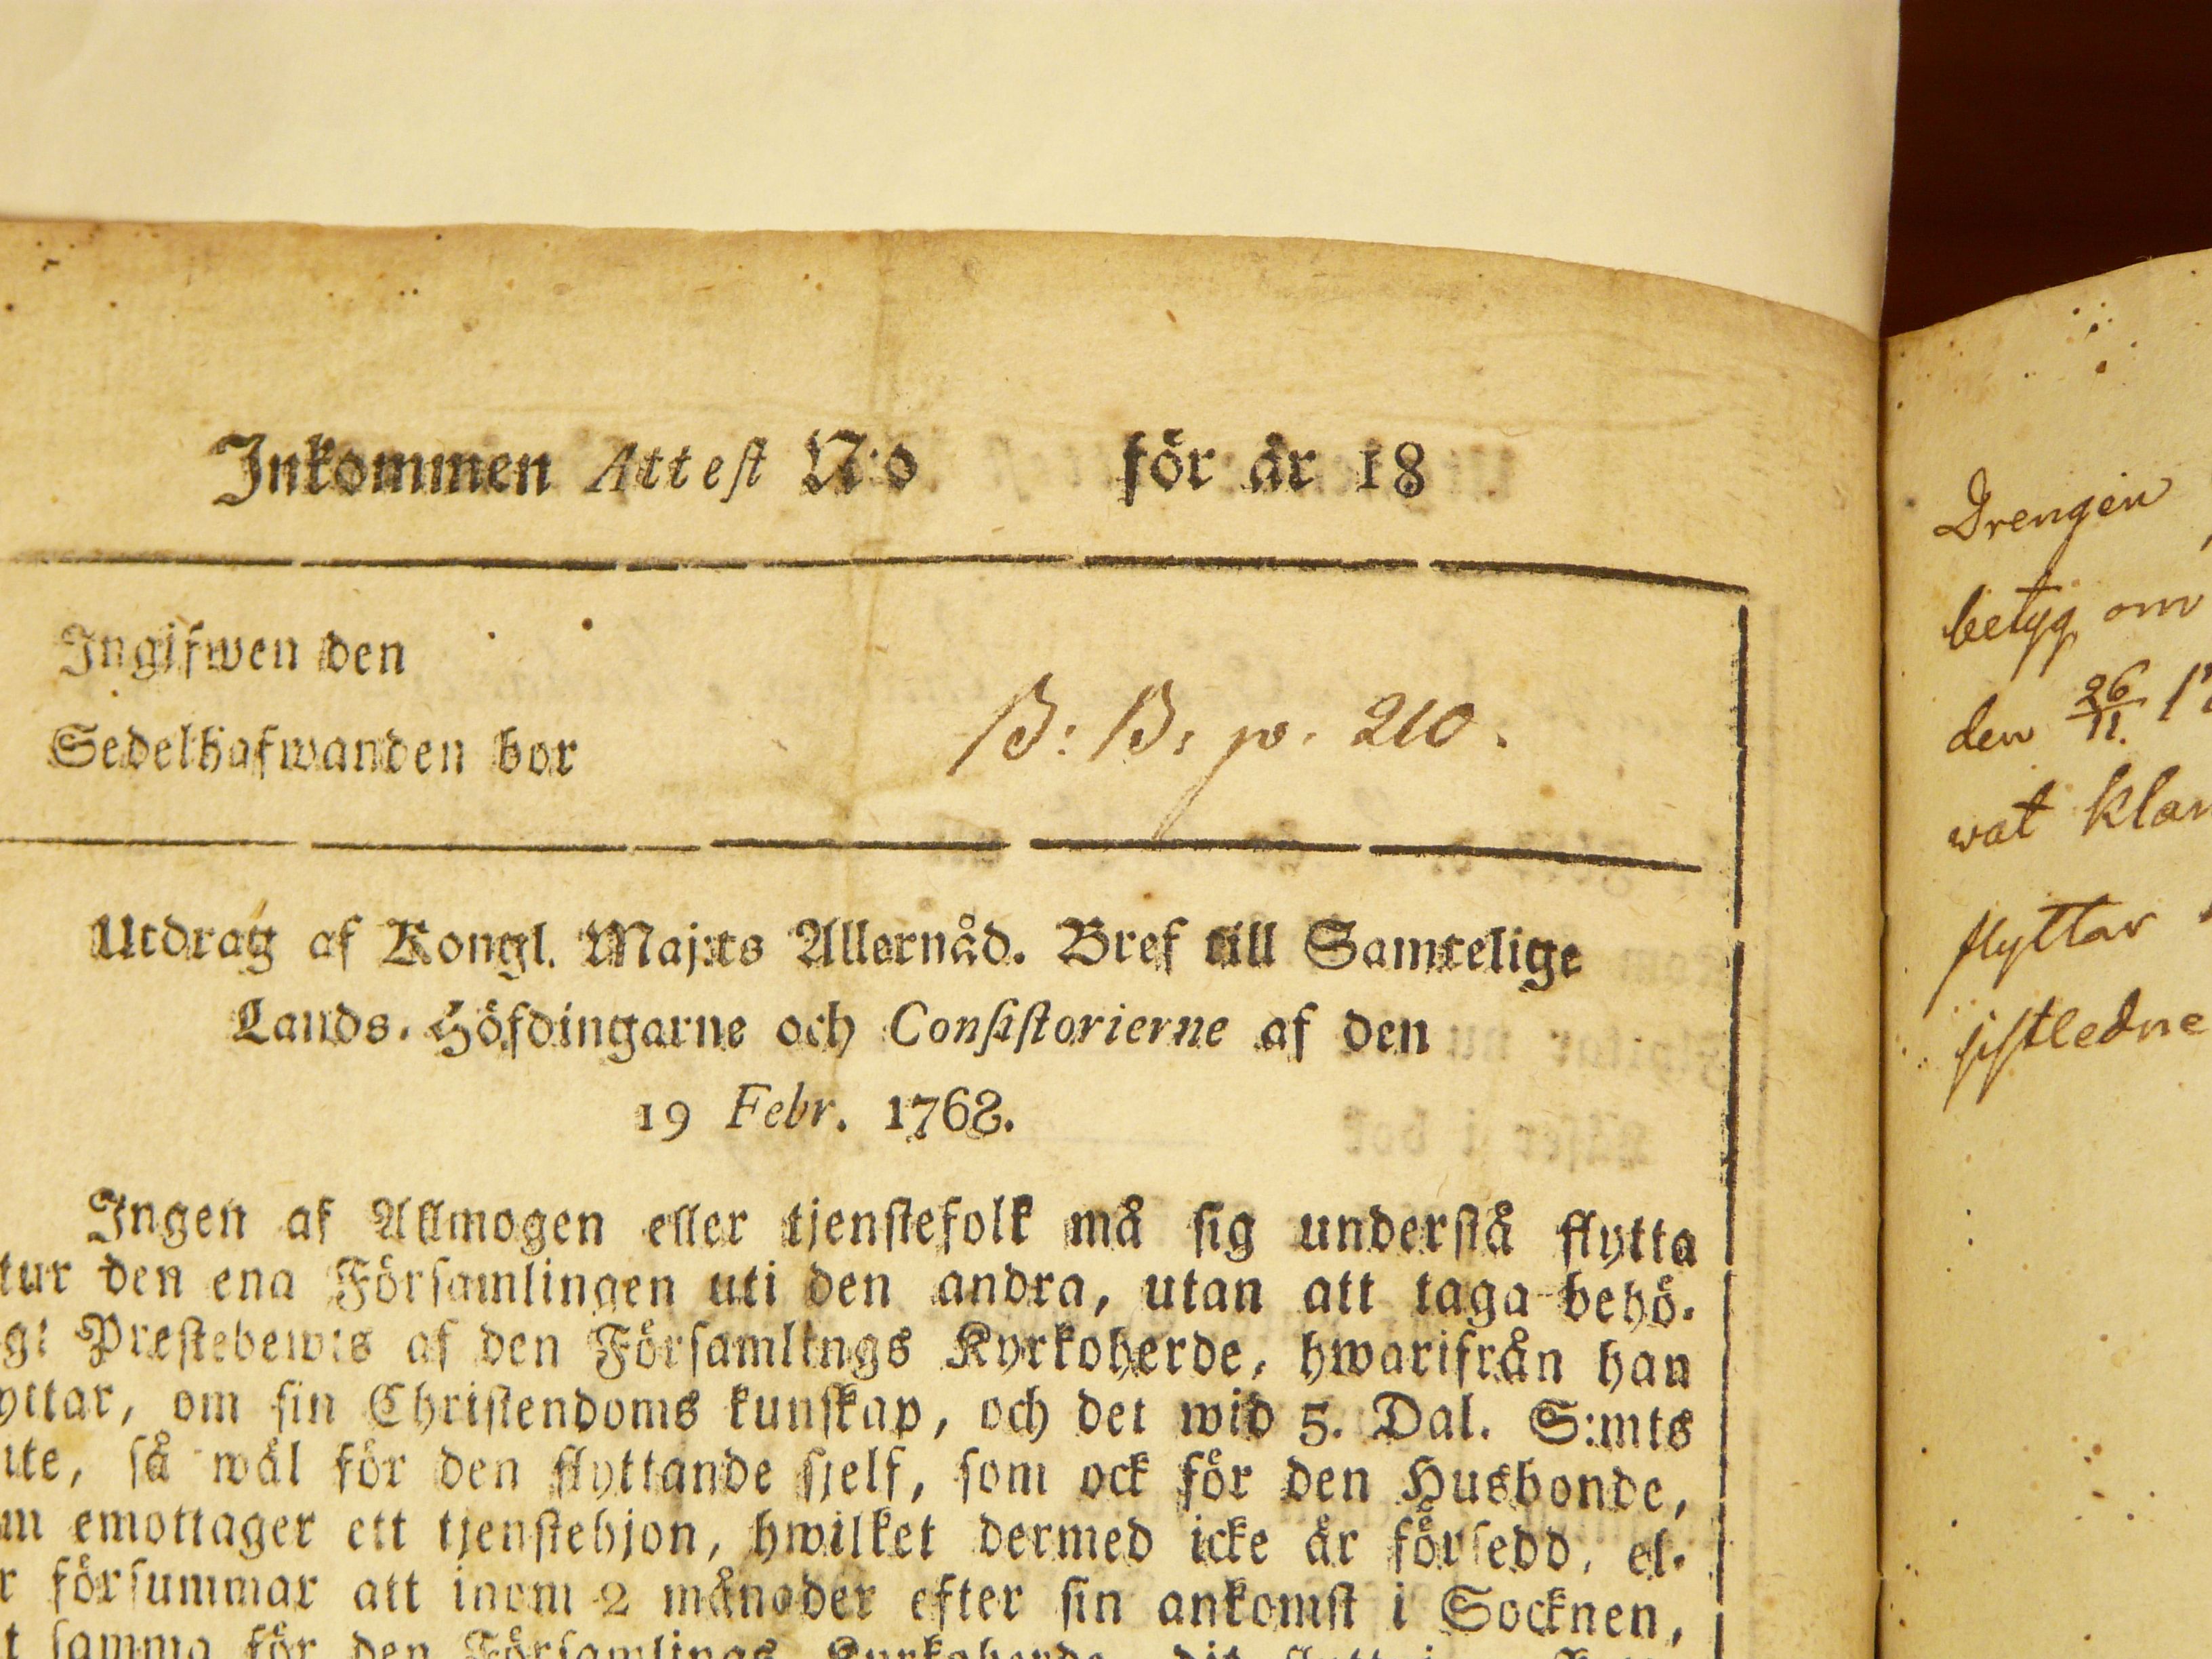 Inkommen Attest N:o för år 18
Ingifwen den
Sedelhafwanden bor
B: B: p. 210.
Utdrag af Kongl. Maj:ts Allernåd. Bref till Samtelige
Lands-Höfdingarne och Consistorierne af den
19 Febr. 1768.
Ingen af Allmogen eller tjenstefolk må sig understå flytta
tur den ena Församlingen uti den andra, utan att taga behö-
gt Prestebewis af den Församlings Kyrkoherde, hwarifrån han
yttar, om sin Christendoms kunskap, och det wid 5. Dal. S:mts
ite, så wäl för den flyttande sjelf, som ock för den Husbonde,
m emottager ett tjenstehjon, hwilket dermed icke är försedd, el-
r försummar att inom 2 månader efter sin ankomst i Socknen,
t samma för den Församlings Kyrkoherde, dit
Drengen
betyg om
den 26/11.
wat klan
flyttar
sistledne